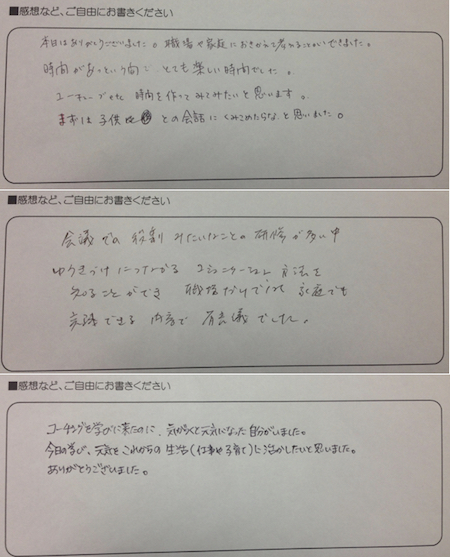 ■感想など、ご自由にお書きください
本日はありがとうございました。職場や家庭におきかえ考えることができました。
時間があっという間で とても楽しい時間でした。
ユーチューブetc 時間を作ってみてみたいと思います。
まずは子供 との会話にくみこめたらなと思いました。
■感想など、ご自由にお書きください
会議での役割みたいなことの研修が多い中
ゆうきづけにつながるコミュニケーション方法を
知ることができ 職場だけでなく家庭でも
実践できる内容で有意義でした。
■感想など、ご自由にお書きください
コーチングを学びに来たのに、気がつくと元気になった自分がいました。
今日の学び、元気をこれからの生活(仕事や子育て)に活かしたいと思いました。
ありがとうございました。